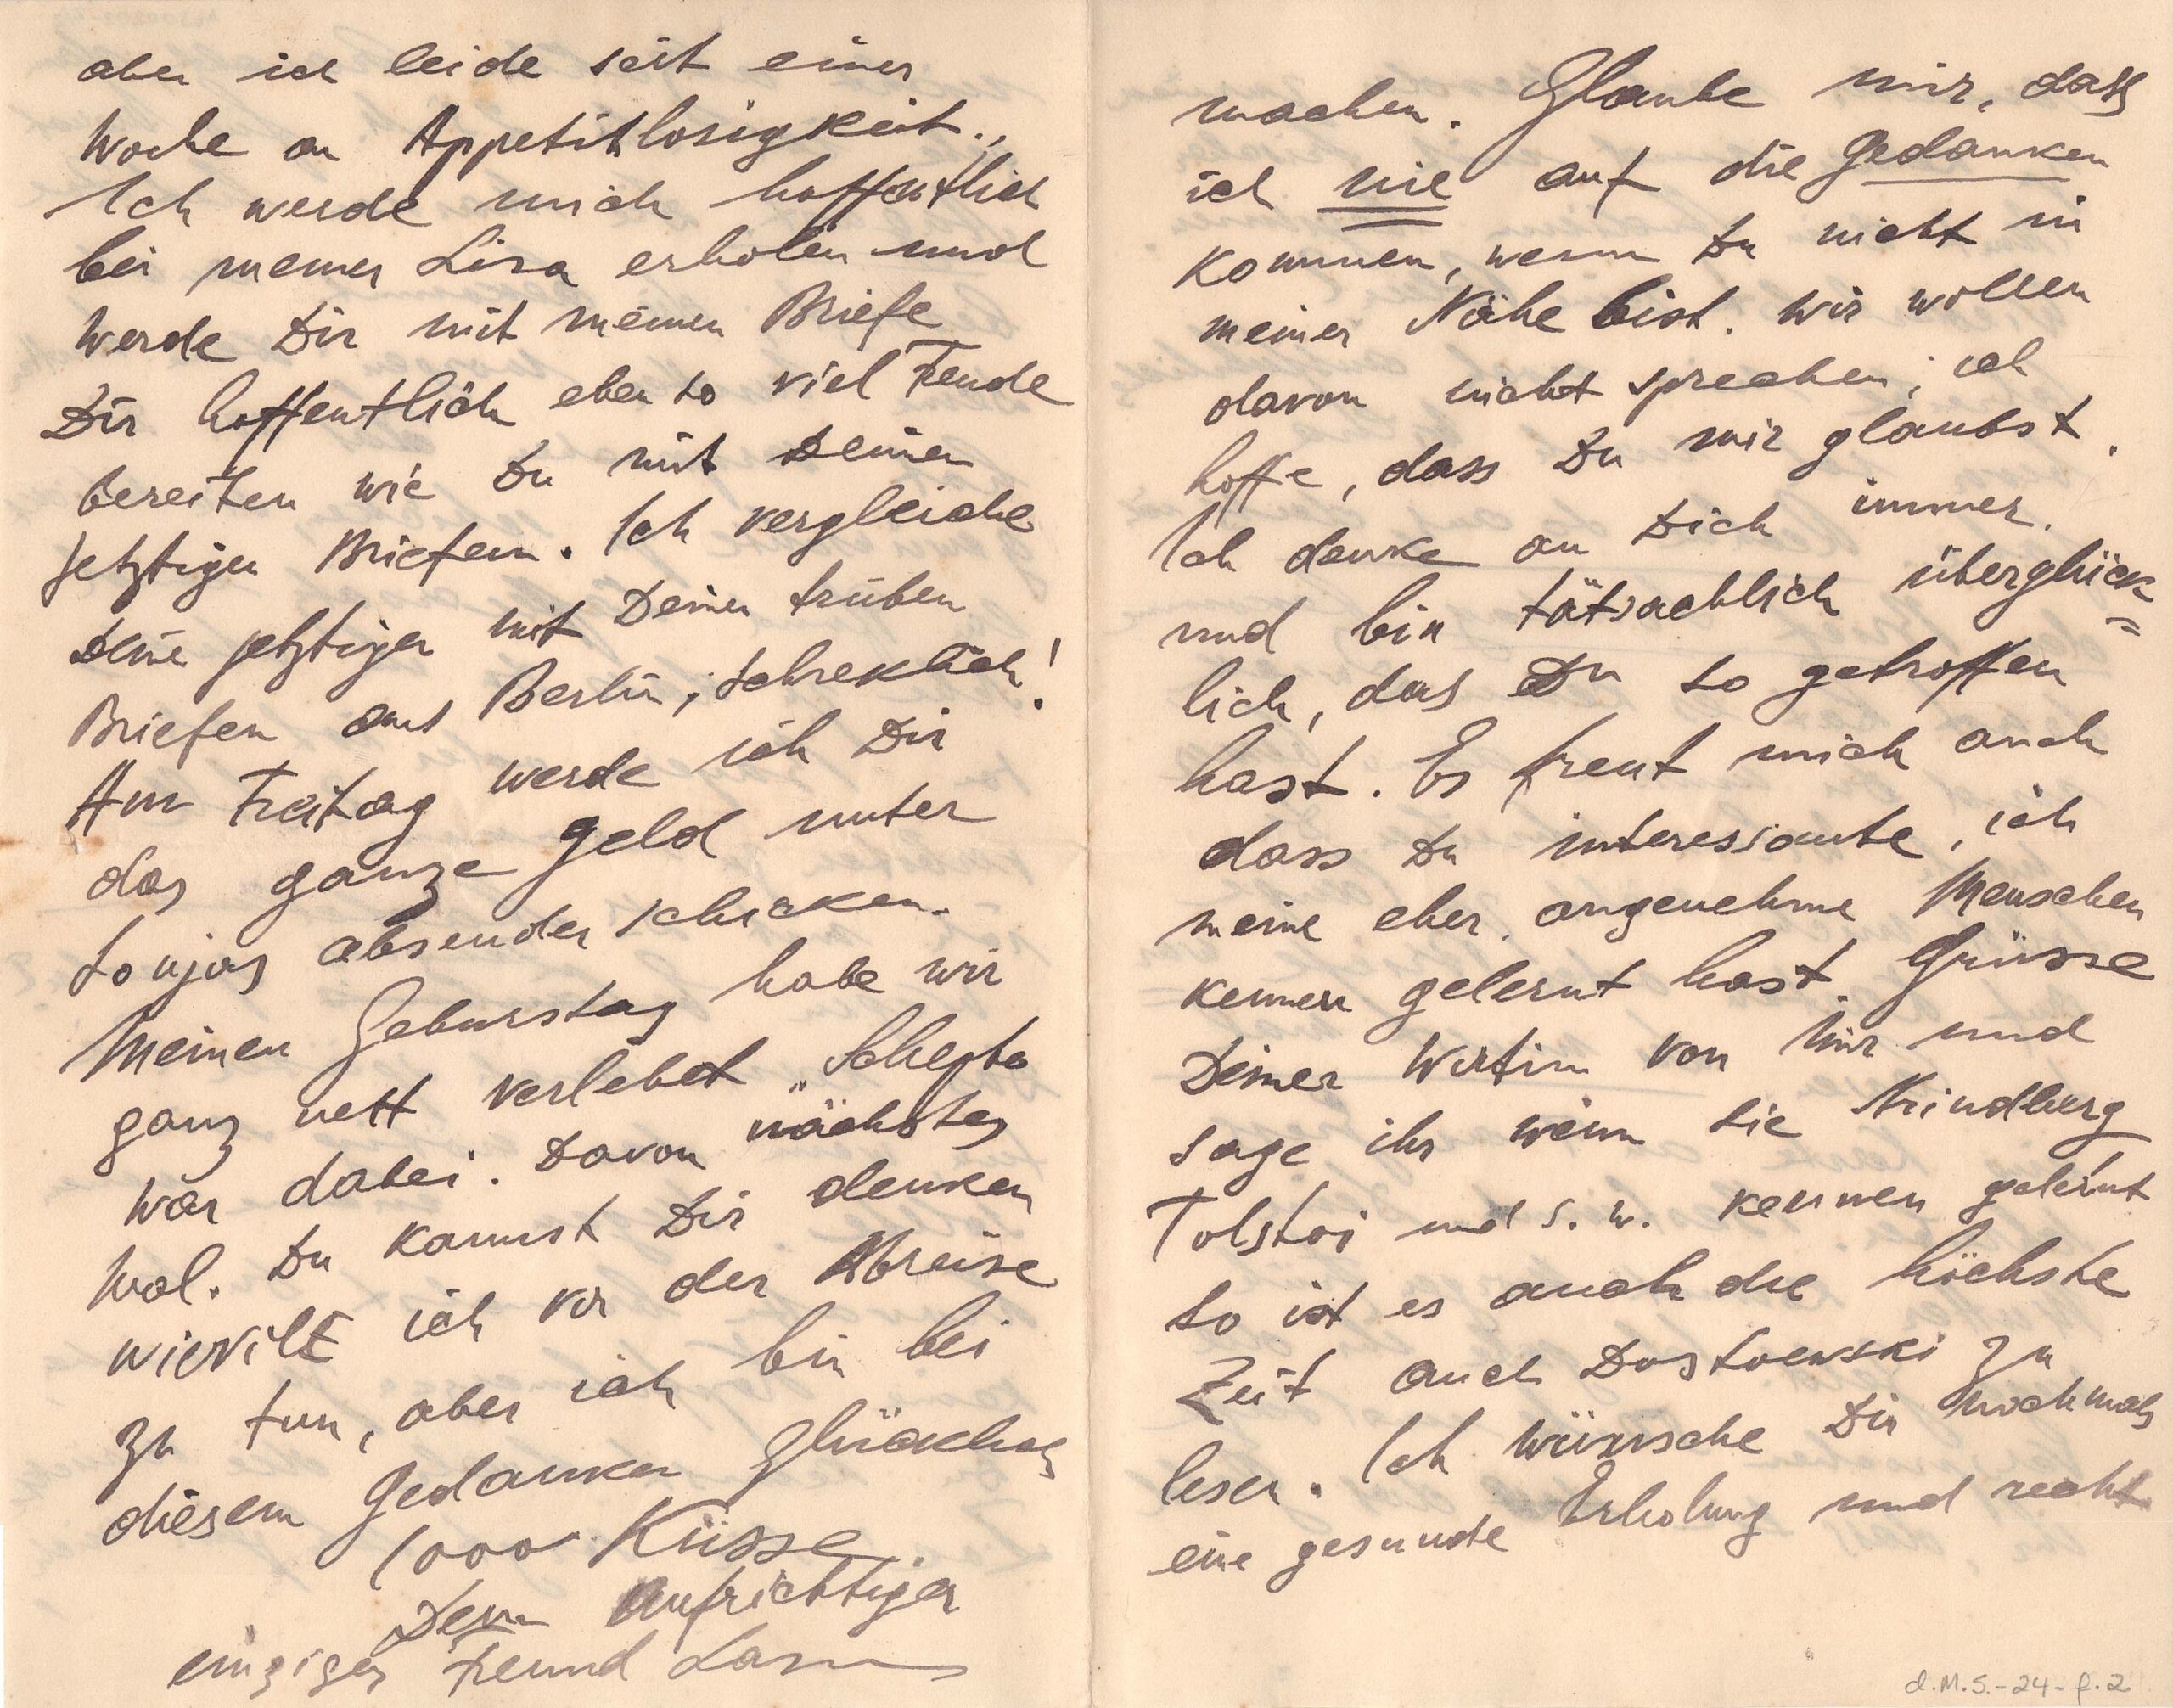 aber ich leide seit einer
Woche an Appetitlosigkeit.,
Ich werde mich hoffentlich
bei meiner Lisa erholen und
werde Dir mit meinen Briefe
Dir hoffentlich eben so viel Feude
bereiten wie Du mit Deinen
jetztigen Briefen. Ich vergleiche
Deine jetztigen mit Deinen trüben
Briefen aus Berlin, schreklich!
Am Freitag werde ich Dir
das ganze Geld unter
Sonjas absender schicken.
Meinen Geburstag habe wir
ganz nett verlebet „Schepte
war dabei. Davon nächstes
Mal. Du kannst Dir denken
wievilt ich vor der Abreise
zu tun, aber ich bin bei
diesem Gedanken glücklich
1000 Küsse
Dein Aufrichtiger
einziger Freund
machen. Glaube mir, dass
ich nie auf die Gedanken
kommen, wenn Du nicht in
meiner Nähe bist. Wir wollen
davon nicht sprechen, ich
hoffe, dass Du mir glaubst.
Ich denke an Dich immer.
und bin tätsachlich überglück=
lich, das Du so getroffen
hast. Es freut mich auch
dass Du interessante, ich
meine eher, angenehme Menschen
kennen gelernt hast. Grüsse
Deiner Wirtin von mir und
sage ihr wenn sie Strindberg
Tolstoi und s. w. kennen gelernt
so ist es auch die höchste
Zeit auch Dostoewski zu
lesen. Ich wünsche Dir nochmals
eine gesunde Erholung und recht
d.M.S.-24-f.2